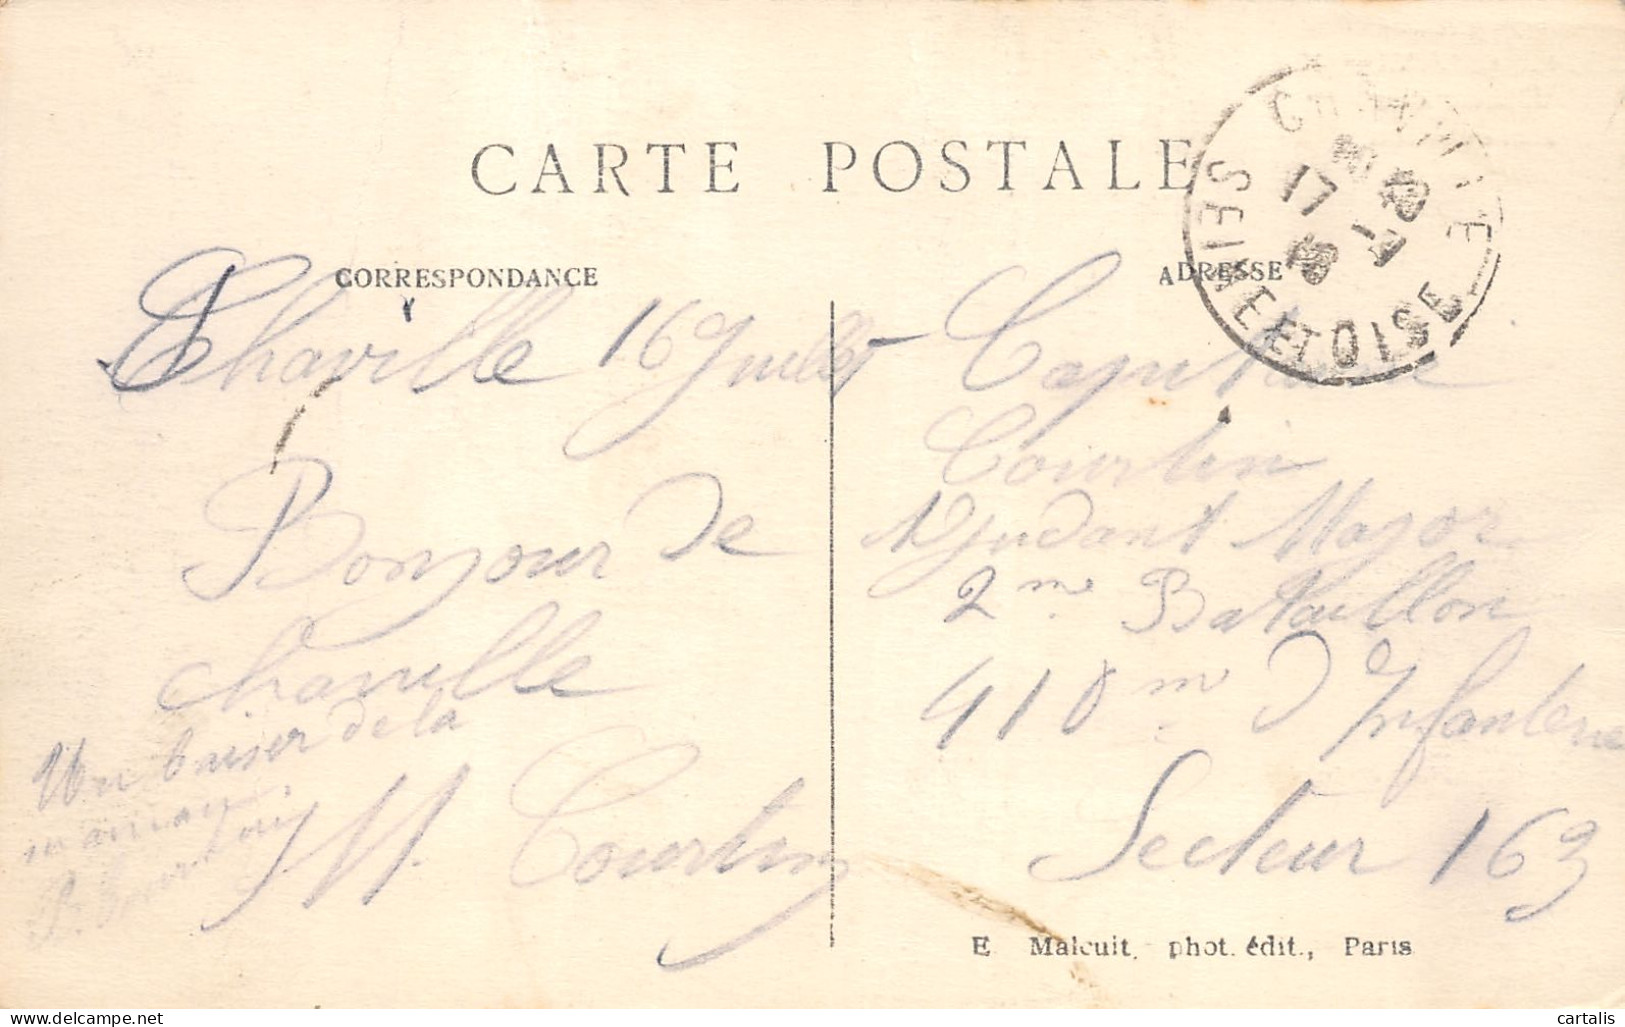 CARTE POSTALE
CORRESPONDANCE
Chaville 16 Juillet
Bonjour de
Chaville
M Courtin
Un baiser de la
maman
ADRESSE
Capitaine
Courtin
Adjudant Major
2me Bataillon
410me D'Infanterie
Secteur 163
E. Malcuit, phot. édit., Paris
17 -7
SEINE ET OISE
delcampe.net
cartalis